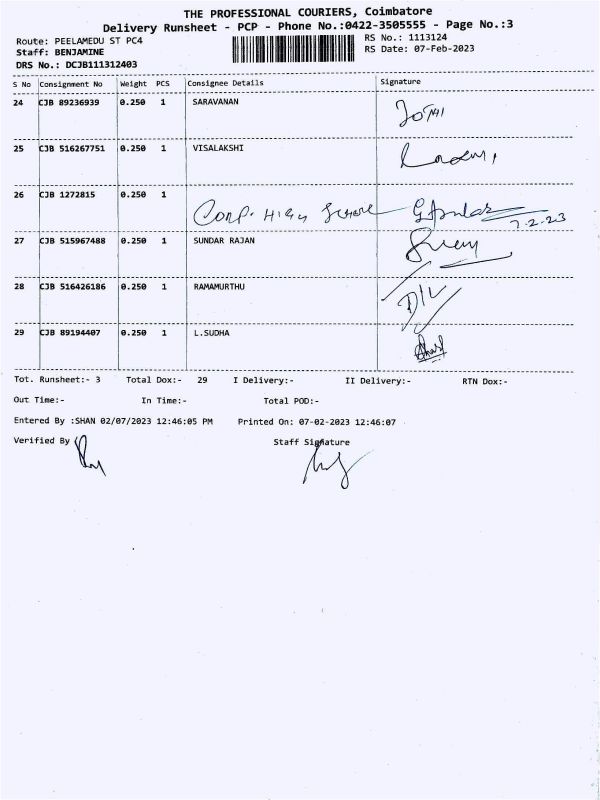 THE PROFESSIONAL COURIERS, Coimbatore
Delivery Runsheet - PCP - Phone No.:0422-3505555 - Page No.:3
Route: PEELAMEDU ST PC4 RS No.: 1113124
Staff: BENJAMINE RS Date: 07-Feb-2023
DRS No.: DCJB111312403
S No Consignment No Weight PCS Consignee Details Signature
24 CJB 89236939 0.250 1 SARAVANAN
25 CJB 516267751 0.250 1 VISALAKSHI
26 CJB 1272815 0.250 1
Corp. High 7-2-23
27 CJB 515967488 0.250 1 SUNDAR RAJAN
28 CJB 516426186 0.250 1 RAMAMURTHU
D/L
29 CJB 89194407 0.250 1 L.SUDHA
Tot. Runsheet:- 3 Total Dox:- 29 I Delivery:- II Delivery:- RTN Dox:-
Out Time:- In Time:- Total POD:-
Entered By :SHAN 02/07/2023 12:46:05 PM Printed On: 07-02-2023 12:46:07
Verified By Staff Signature